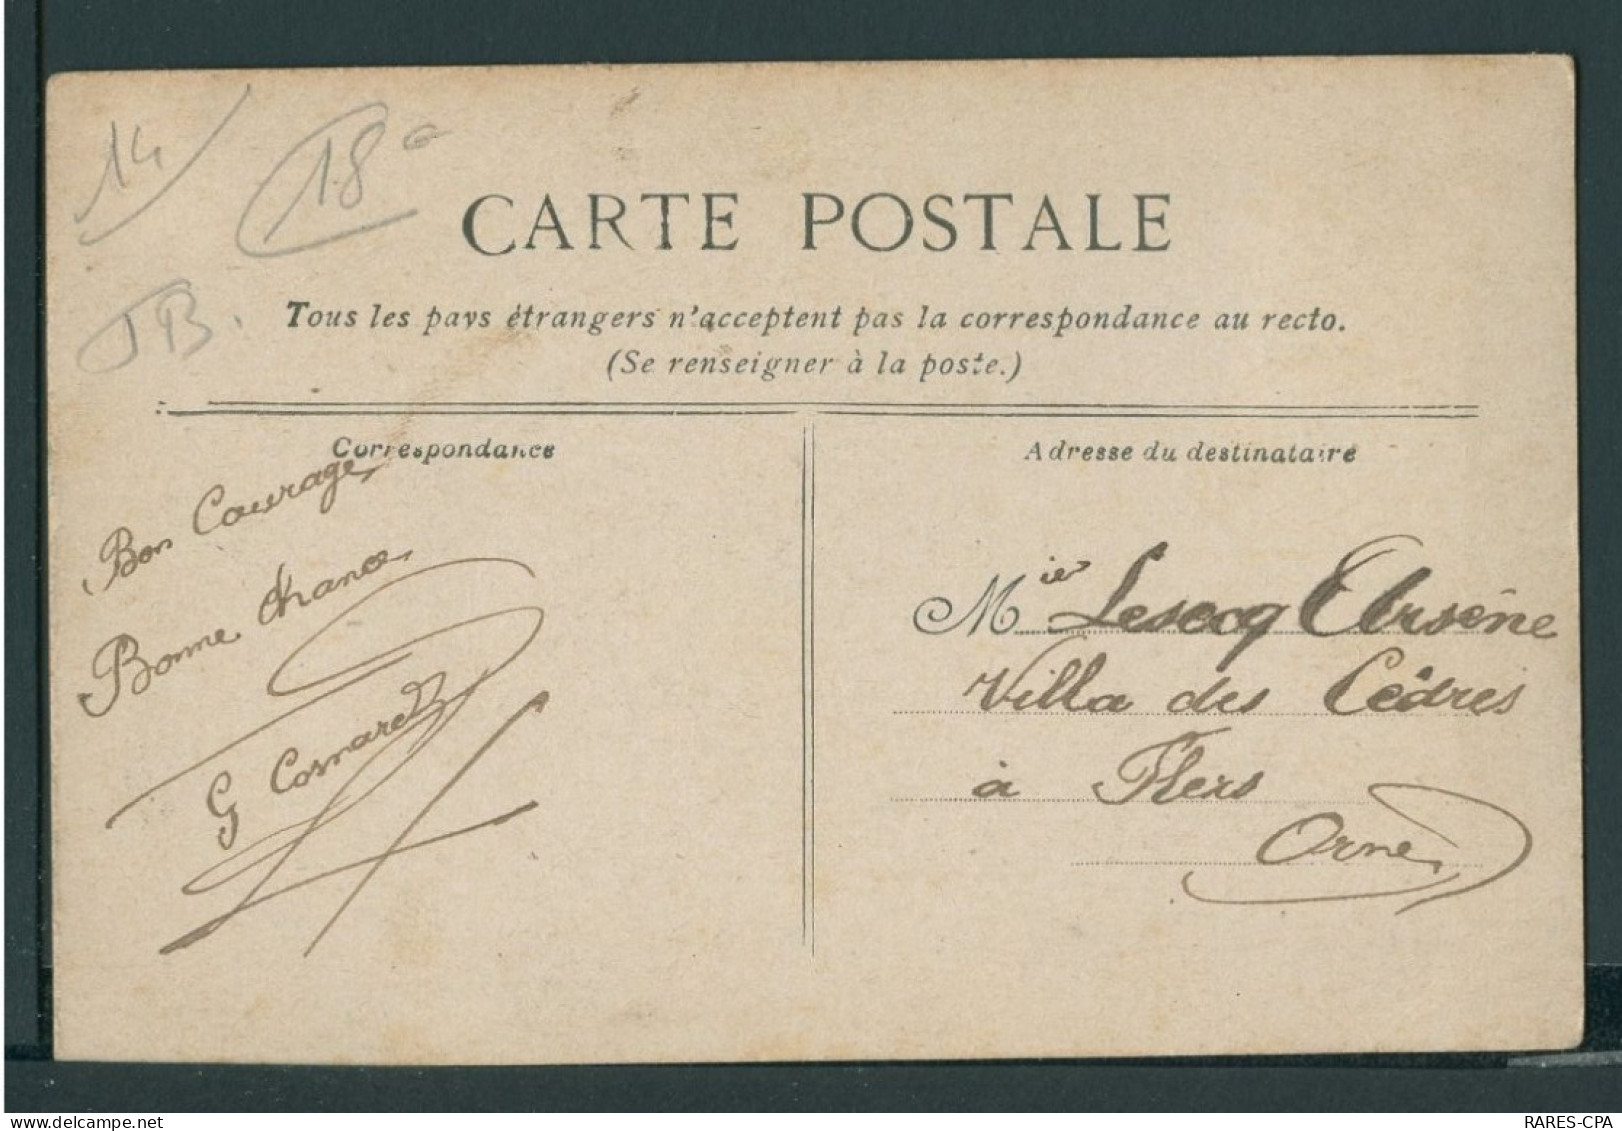 14
18
JB.
CARTE POSTALE
Tous les pays étrangers n'acceptent pas la correspondance au recto.
(Se renseigner à la poste.)
Correspondance
Bon Courage
Bonne Chance
G Cosnard
Adresse du destinataire
Mier Lesecq Arsène
Villa des Cèdres
à Flers
Orne
RARES-CPA